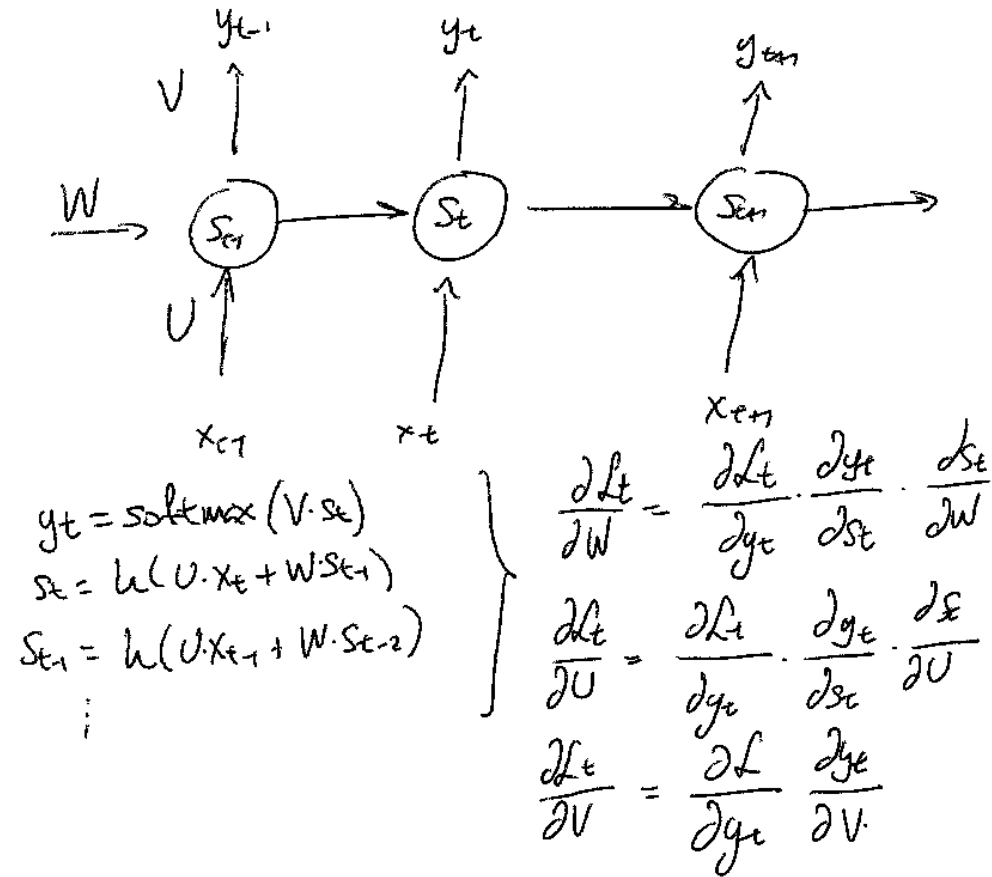 y_{t-1} y_t y_{t+1}
V
W S_{t-1} S_t S_{t+1}
U
x_{t-1} x_t x_{t+1}
y_t = softmax(V·s_t)
s_t = h(U·x_t + W·s_{t-1})
s_{t-1} = h(U·x_{t-1} + W·s_{t-2})
⋮
∂ℒ_t/∂W = ∂ℒ_t/∂y_t · ∂y_t/∂s_t · ∂s_t/∂W
∂ℒ_t/∂U = ∂ℒ_t/∂y_t · ∂y_t/∂s_t · ∂s_t/∂U
∂ℒ_t/∂V = ∂ℒ/∂y_t ∂y_t/∂V.